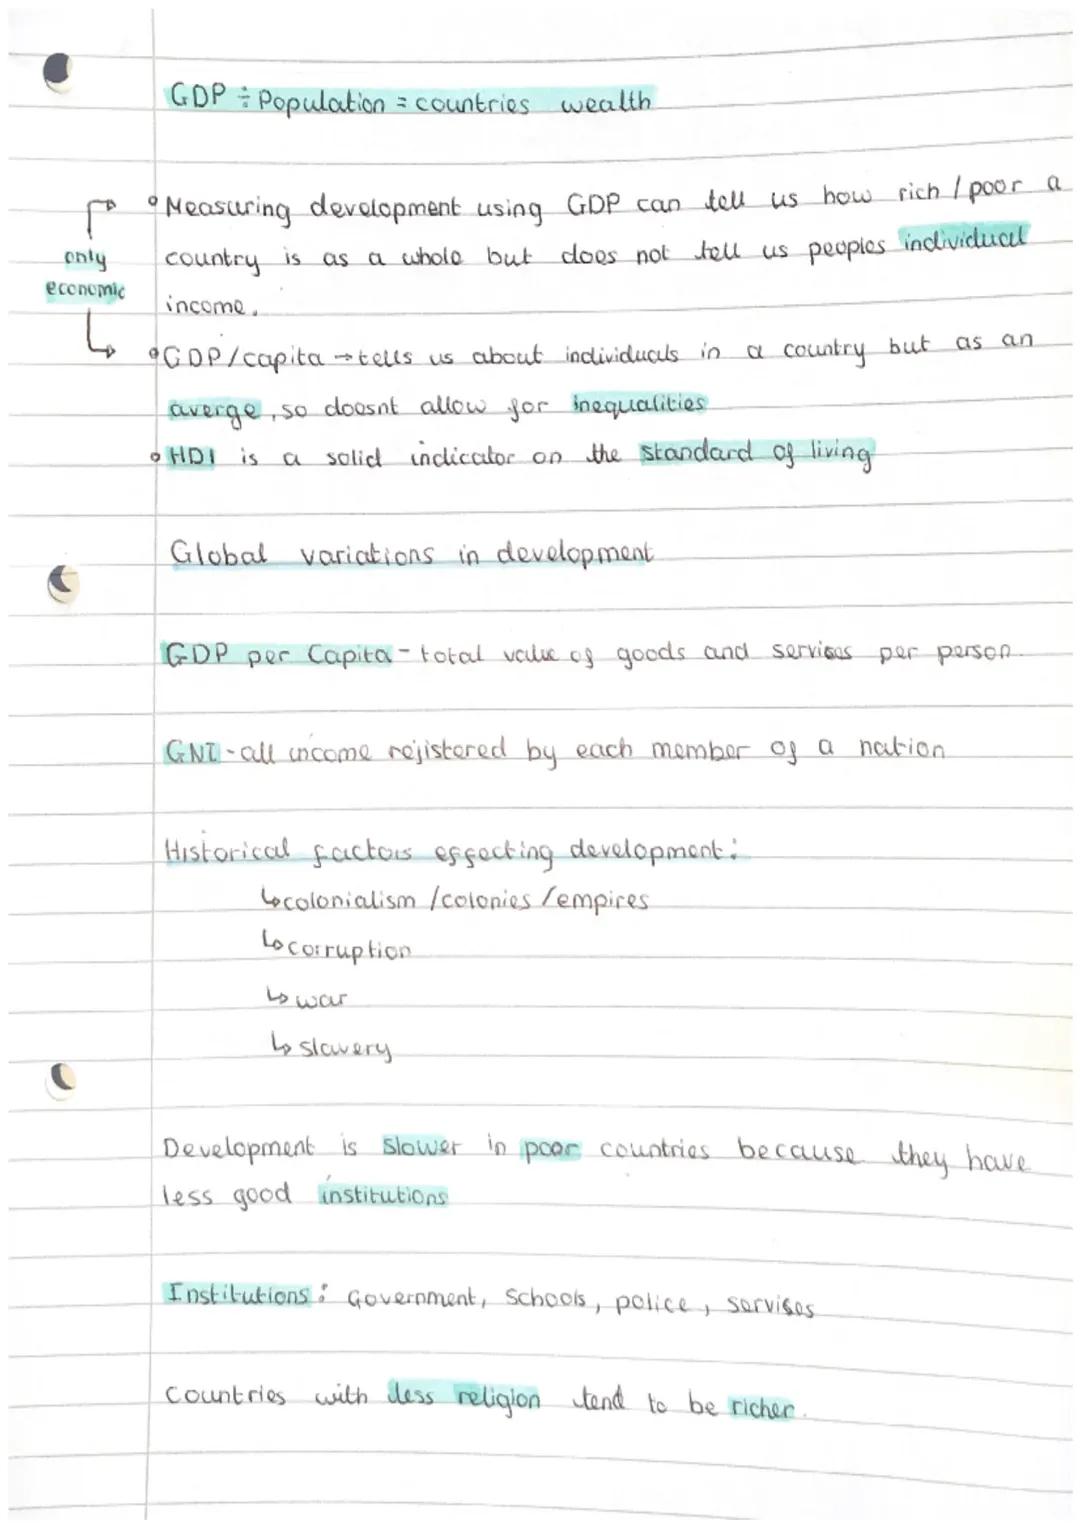 GDP ÷ Population = countries wealth
° Measuring development using GDP can tell us how rich / poor a
only
country is as a whole but does not tell us peoples individual
economic
income.
° GDP/capita → tells us about individuals in a country but as an
averge, so doesnt allow for inequalities
° HDI is a solid indicator on the standard of living
Global variations in development
GDP per Capita - total value of goods and servises per person.
GNI - all income rejistered by each member of a nation
Historical factors effecting development:
↳ colonialism /colonies /empires
↳ corruption
↳ war
↳ slavery
Development is slower in poor countries because they have
less good institutions
Institutions: Government, Schools, police, servises
Countries with less religion tend to be richer.